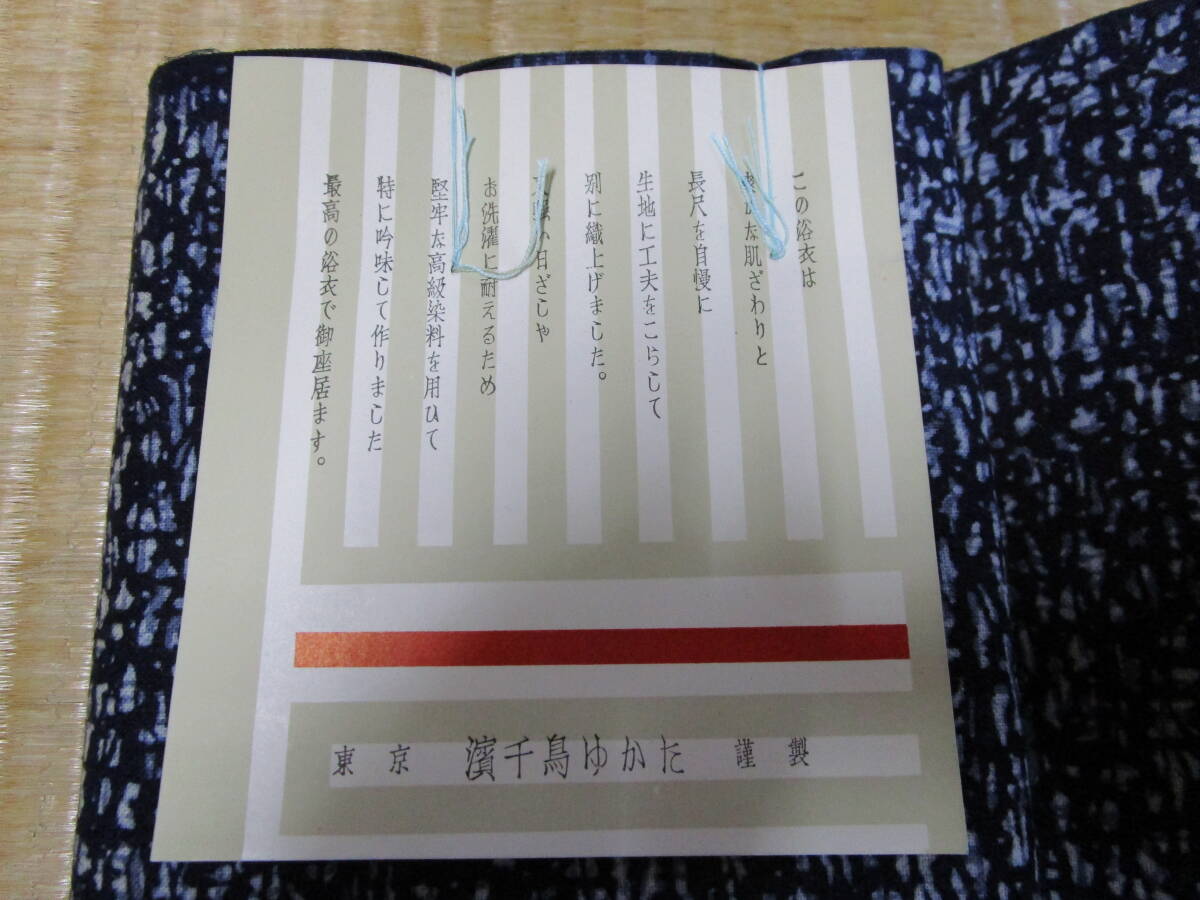 この浴衣は
な肌ざわりと
長尺を自慢に
生地に工夫をこらして
別に織上げました。
い日ざしや
お洗濯に耐えるため
堅牢な高級染料を用ひて
特に吟味して作りました
最高の浴衣で御座居ます。
東京 濱千鳥ゆかた 謹製